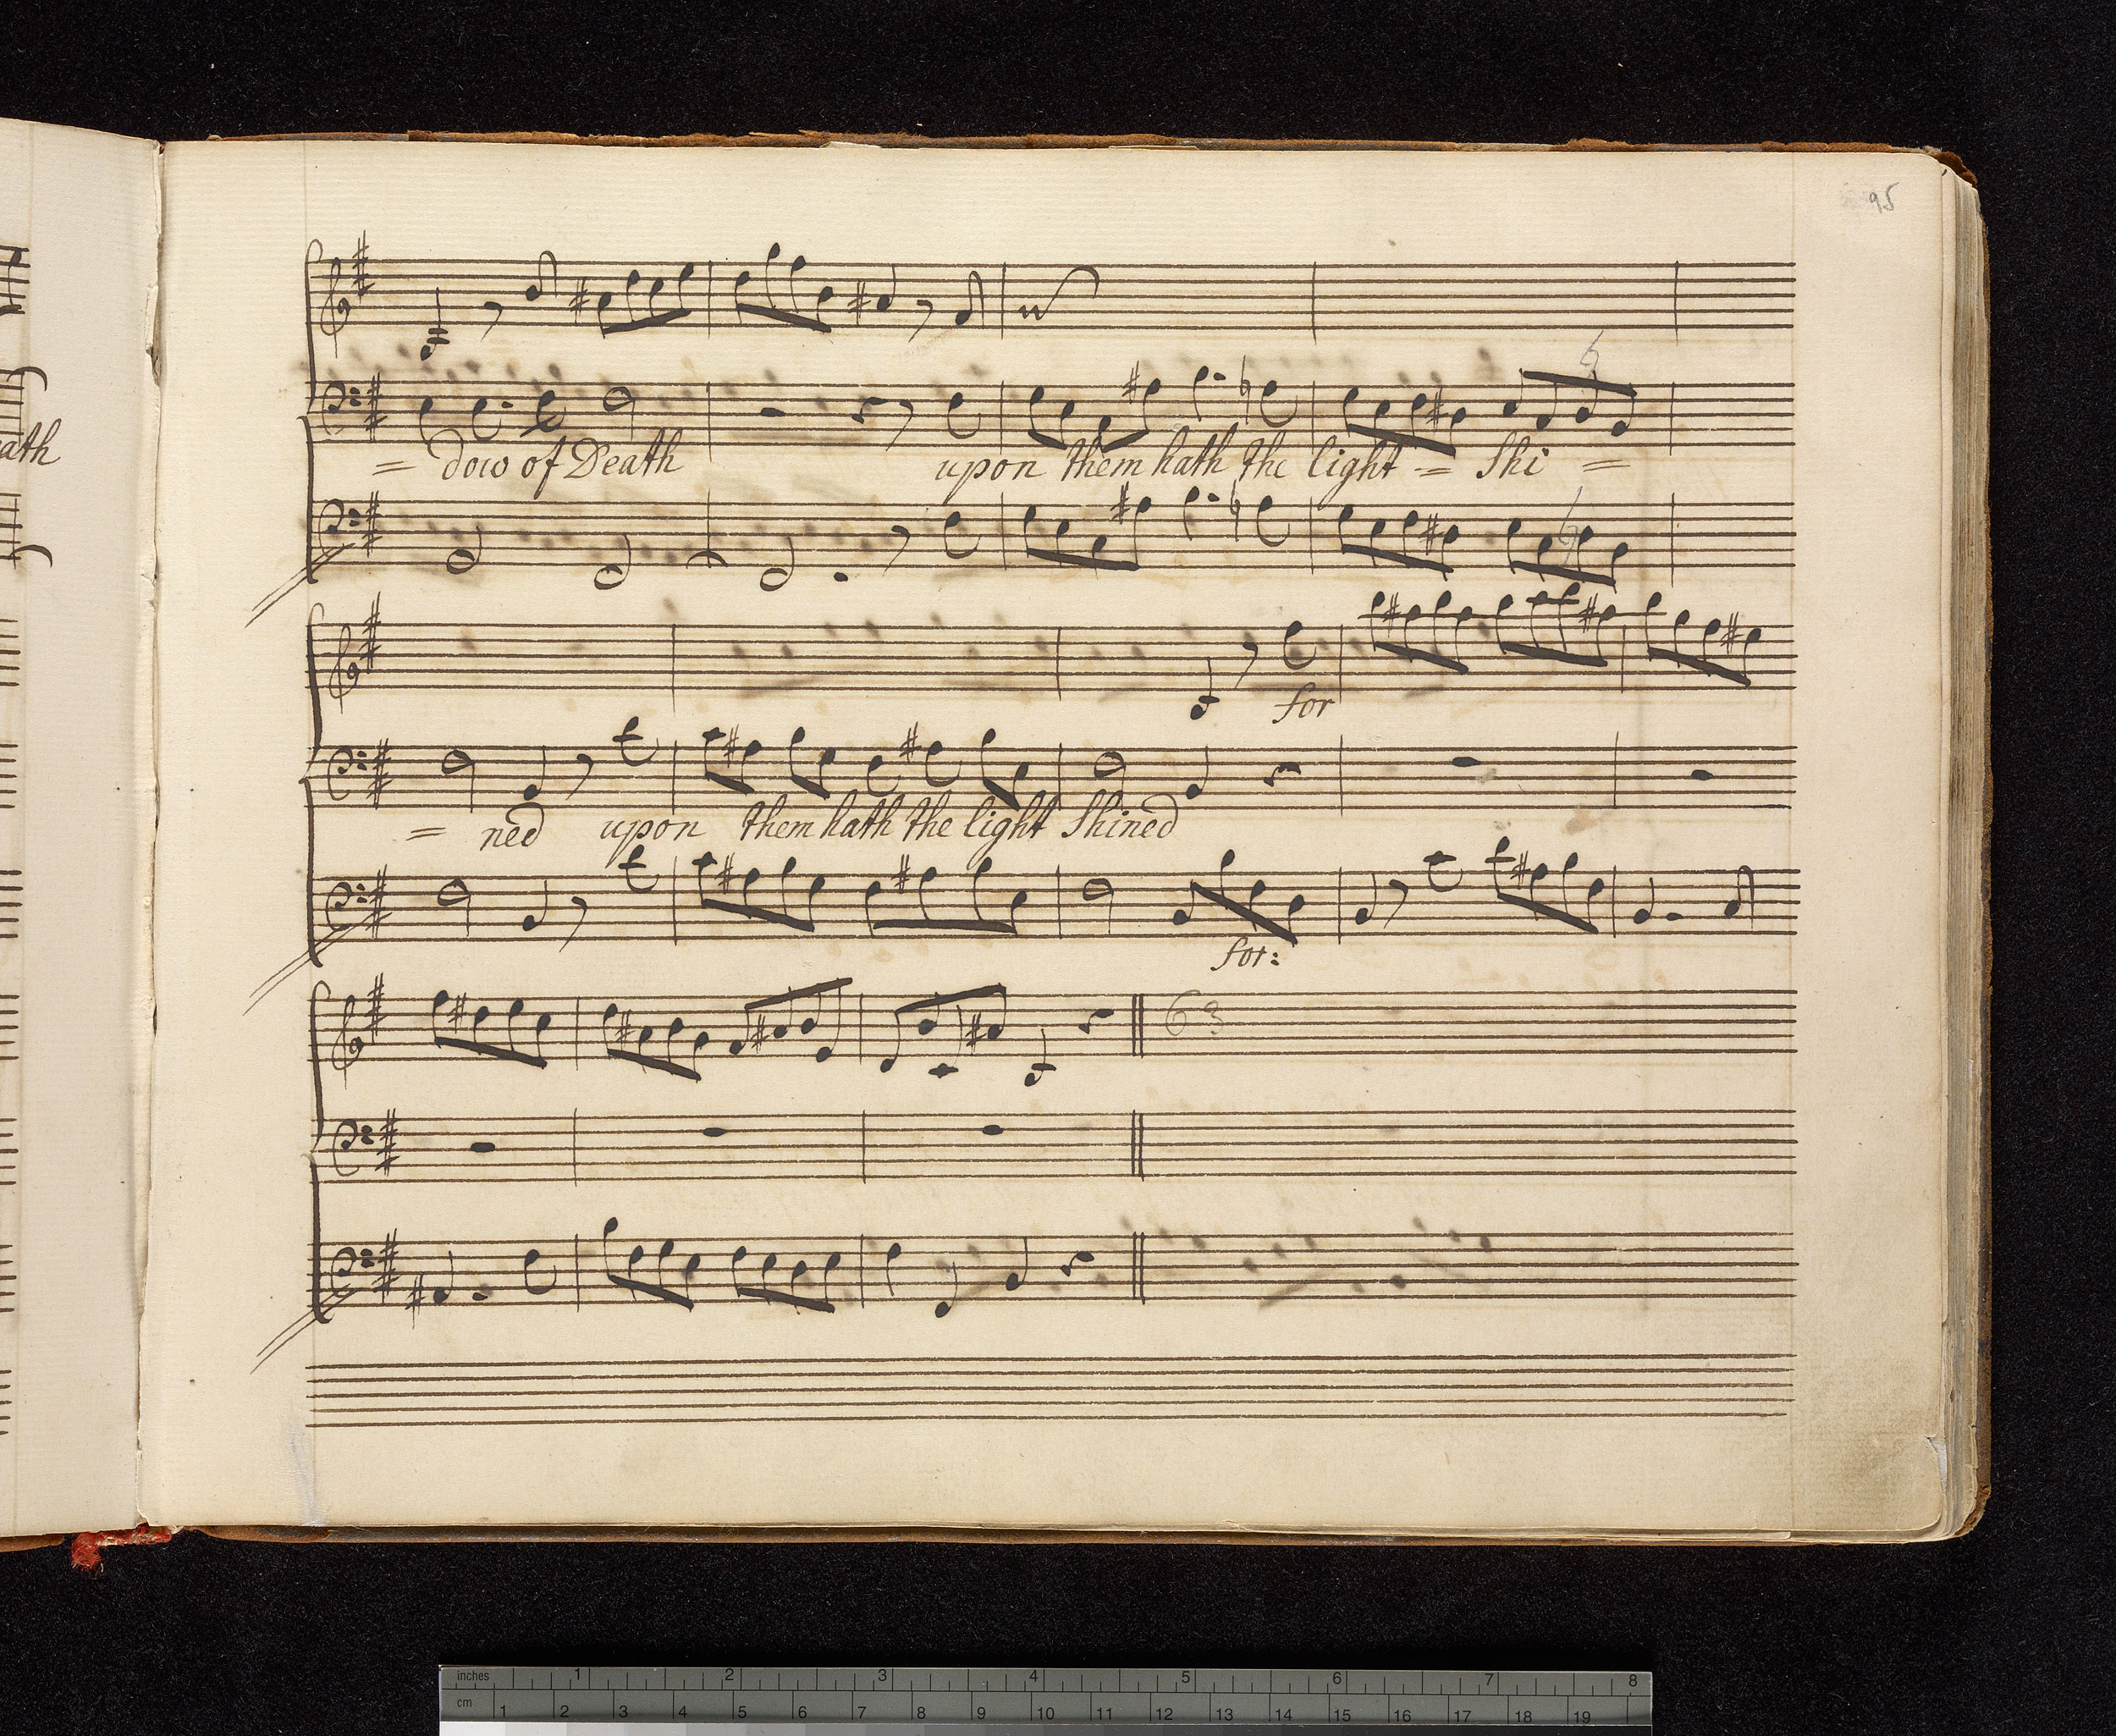 95
ath
= dow of Death upon them hath the light = Shi =
for
= ned upon them hath the light Shined
for:
63
inches 1 2 3 4 5 6 7 8
cm 1 2 3 4 5 6 7 8 9 10 11 12 13 14 15 16 17 18 19